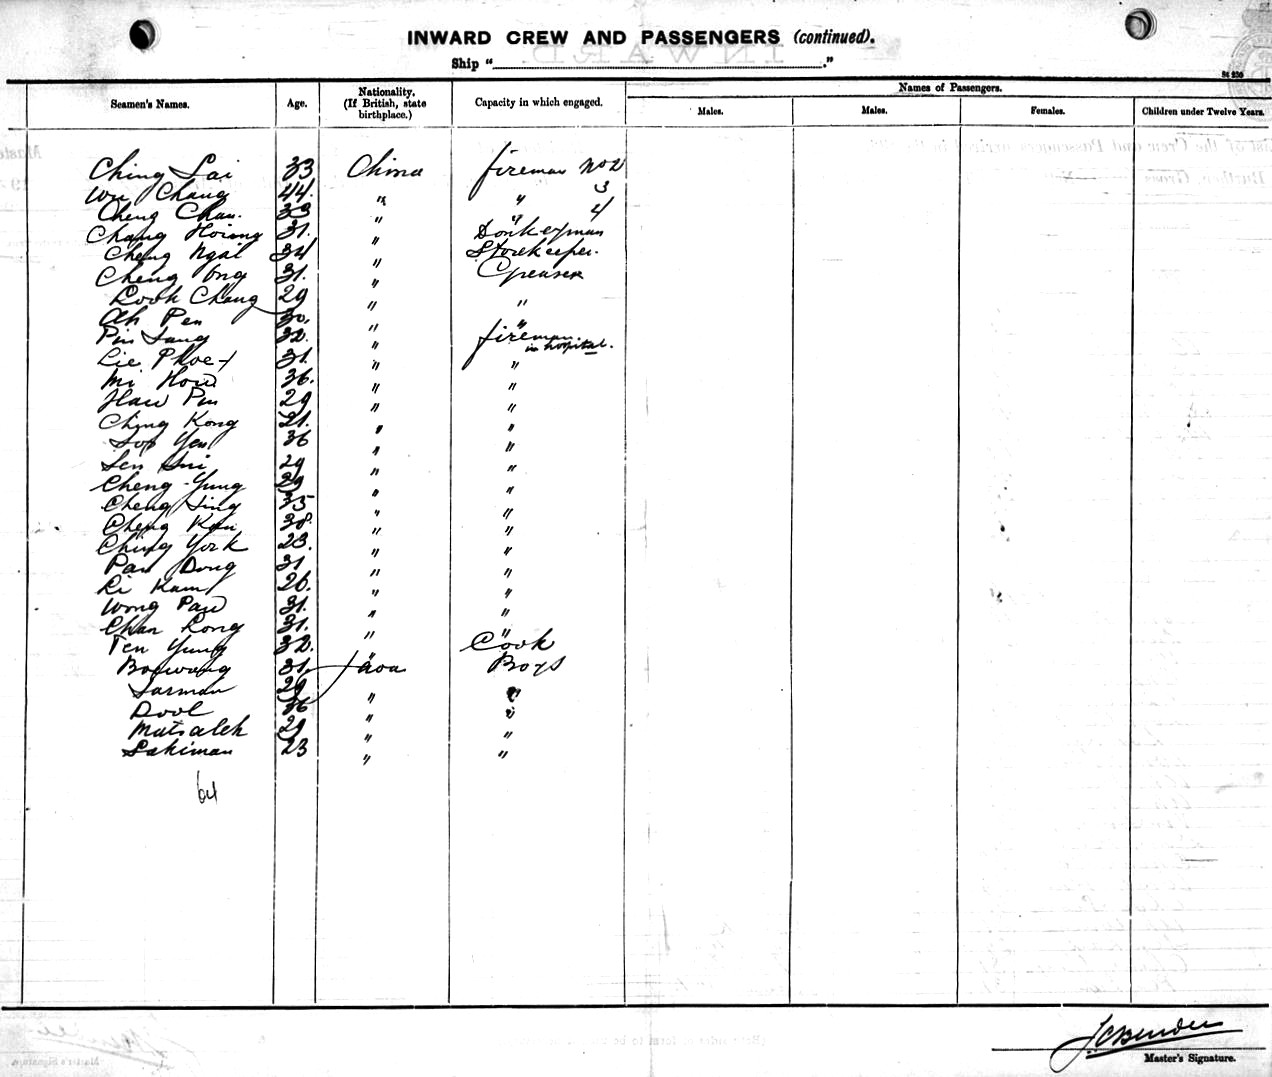 INWARD CREW AND PASSENGERS (continued).
Ship " "
St 230
Seamen's Names. Age. Nationality. (If British, state birthplace.) Capacity in which engaged. Names of Passengers.
Males. Males. Females. Children under Twelve Years.
Ching Lai 33 China fireman No 2
Wu Chang 44. " " 3
Cheng Chan. 33 " " 4
Chang Hoing 31. " Donkeyman
Cheng Ngai 34 " Storekeeper.
Cheng Ong 31. " Greaser
Look Chang 29 " "
Ah Pen 30. " "
Pin Sang 32. " fireman in hospital.
Lie Phoe 31. " "
Mi How 36. " "
Haw Pin 29 " "
Ching Kong 21. " "
Soo Yen 36 " "
Sen Sui 29 " "
Cheng Yung 29 " "
Cheng Sing 35 " "
Cheng Kan 38. " "
Ching York 23. " "
Pan Dong 31 " "
Li Kam 26. " "
Wong Paw 31. " "
Chan Long 31. " "
Ten Yung 32. " Cook
Boewang 31. Java Boys
Sarman 29 " "
Dool 36 " "
Matsaleh 29 " "
Sakiman 23 " "
64
J C Bender
Master's Signature.